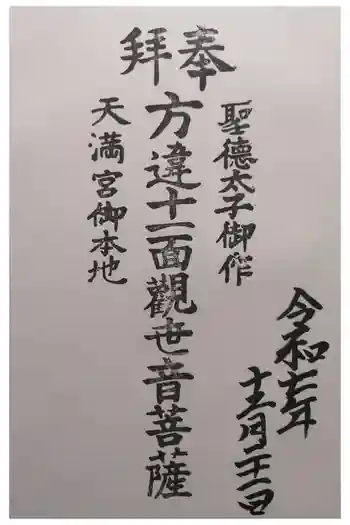 奉拝
令和七年
十二月二十一日
聖徳太子御作
方違十一面觀世音菩薩
天満宮御本地